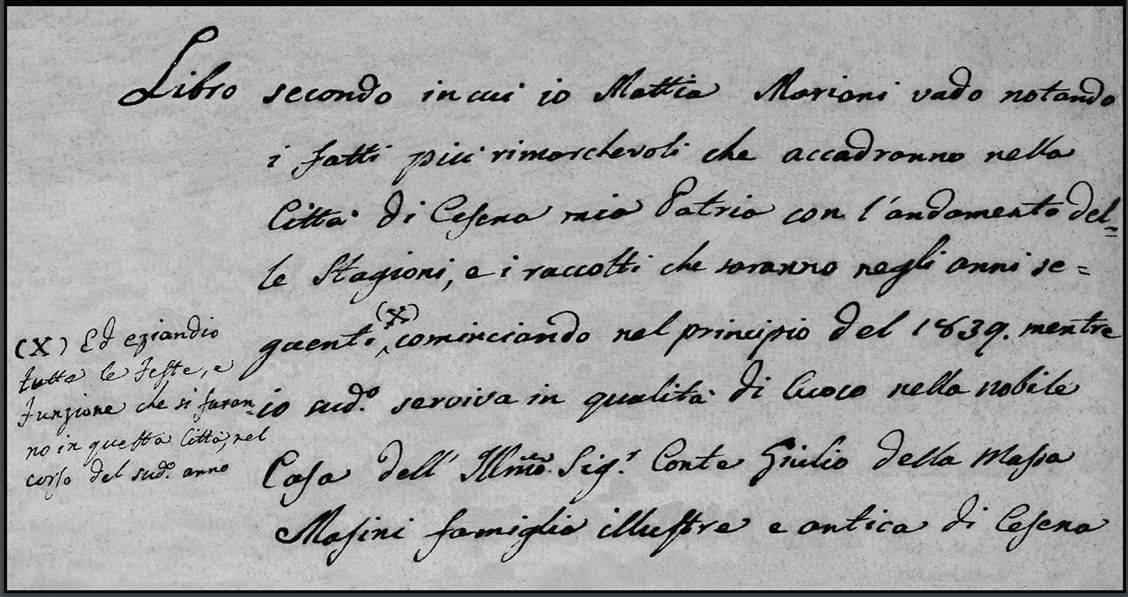 Libro secondo in cui io Mattia Mariani vado notando
i fatti più rimarchevoli che accadranno nella
Città di Cesena mia Patria con l'andamento del=
le Stagioni, e i raccolti che saranno negli anni se=
guenti (X) cominciando nel principio del 1839. mentre
io sud.o serviva in qualità di Cuoco nella nobile
Casa dell' Illmo. Sig.r Conte Giulio della Massa
Masini famiglia illustre e antica di Cesena
(X) Ed eziandio
tutte le Feste, e
Funzione che si faran=
no in questa Città, nel
corso del sud.o anno